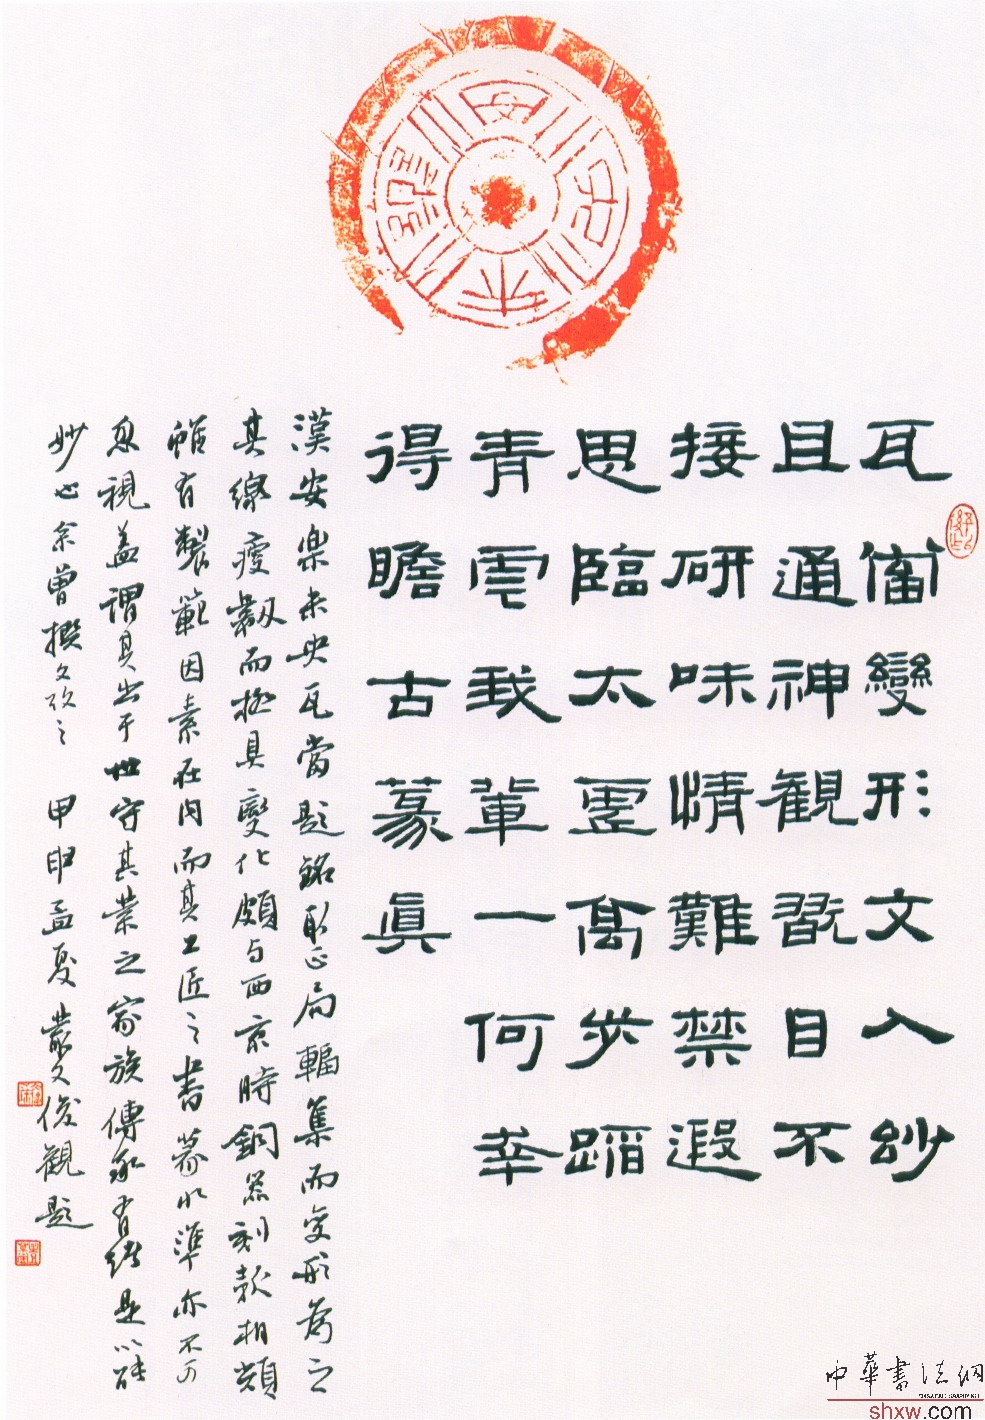 瓦備變形文入玅
且通神觀翫目不
接研味情難禁遐
思臨太靈萬步蹈
青雲我輩一何幸
得瞻古篆眞
漢安樂未央瓦當題銘取正局輻集而變形為之
其線瘦而極具變化頗与西京時銅器刻款相類
雖有製範因素在内而其工匠之書篆水準亦不可
忽視蓋謂其出于世守其業之家族傳承有緒是以能
妙也余曾撰文攷之 甲申孟夏叢文俊觀題
中華書法網
shxw.com